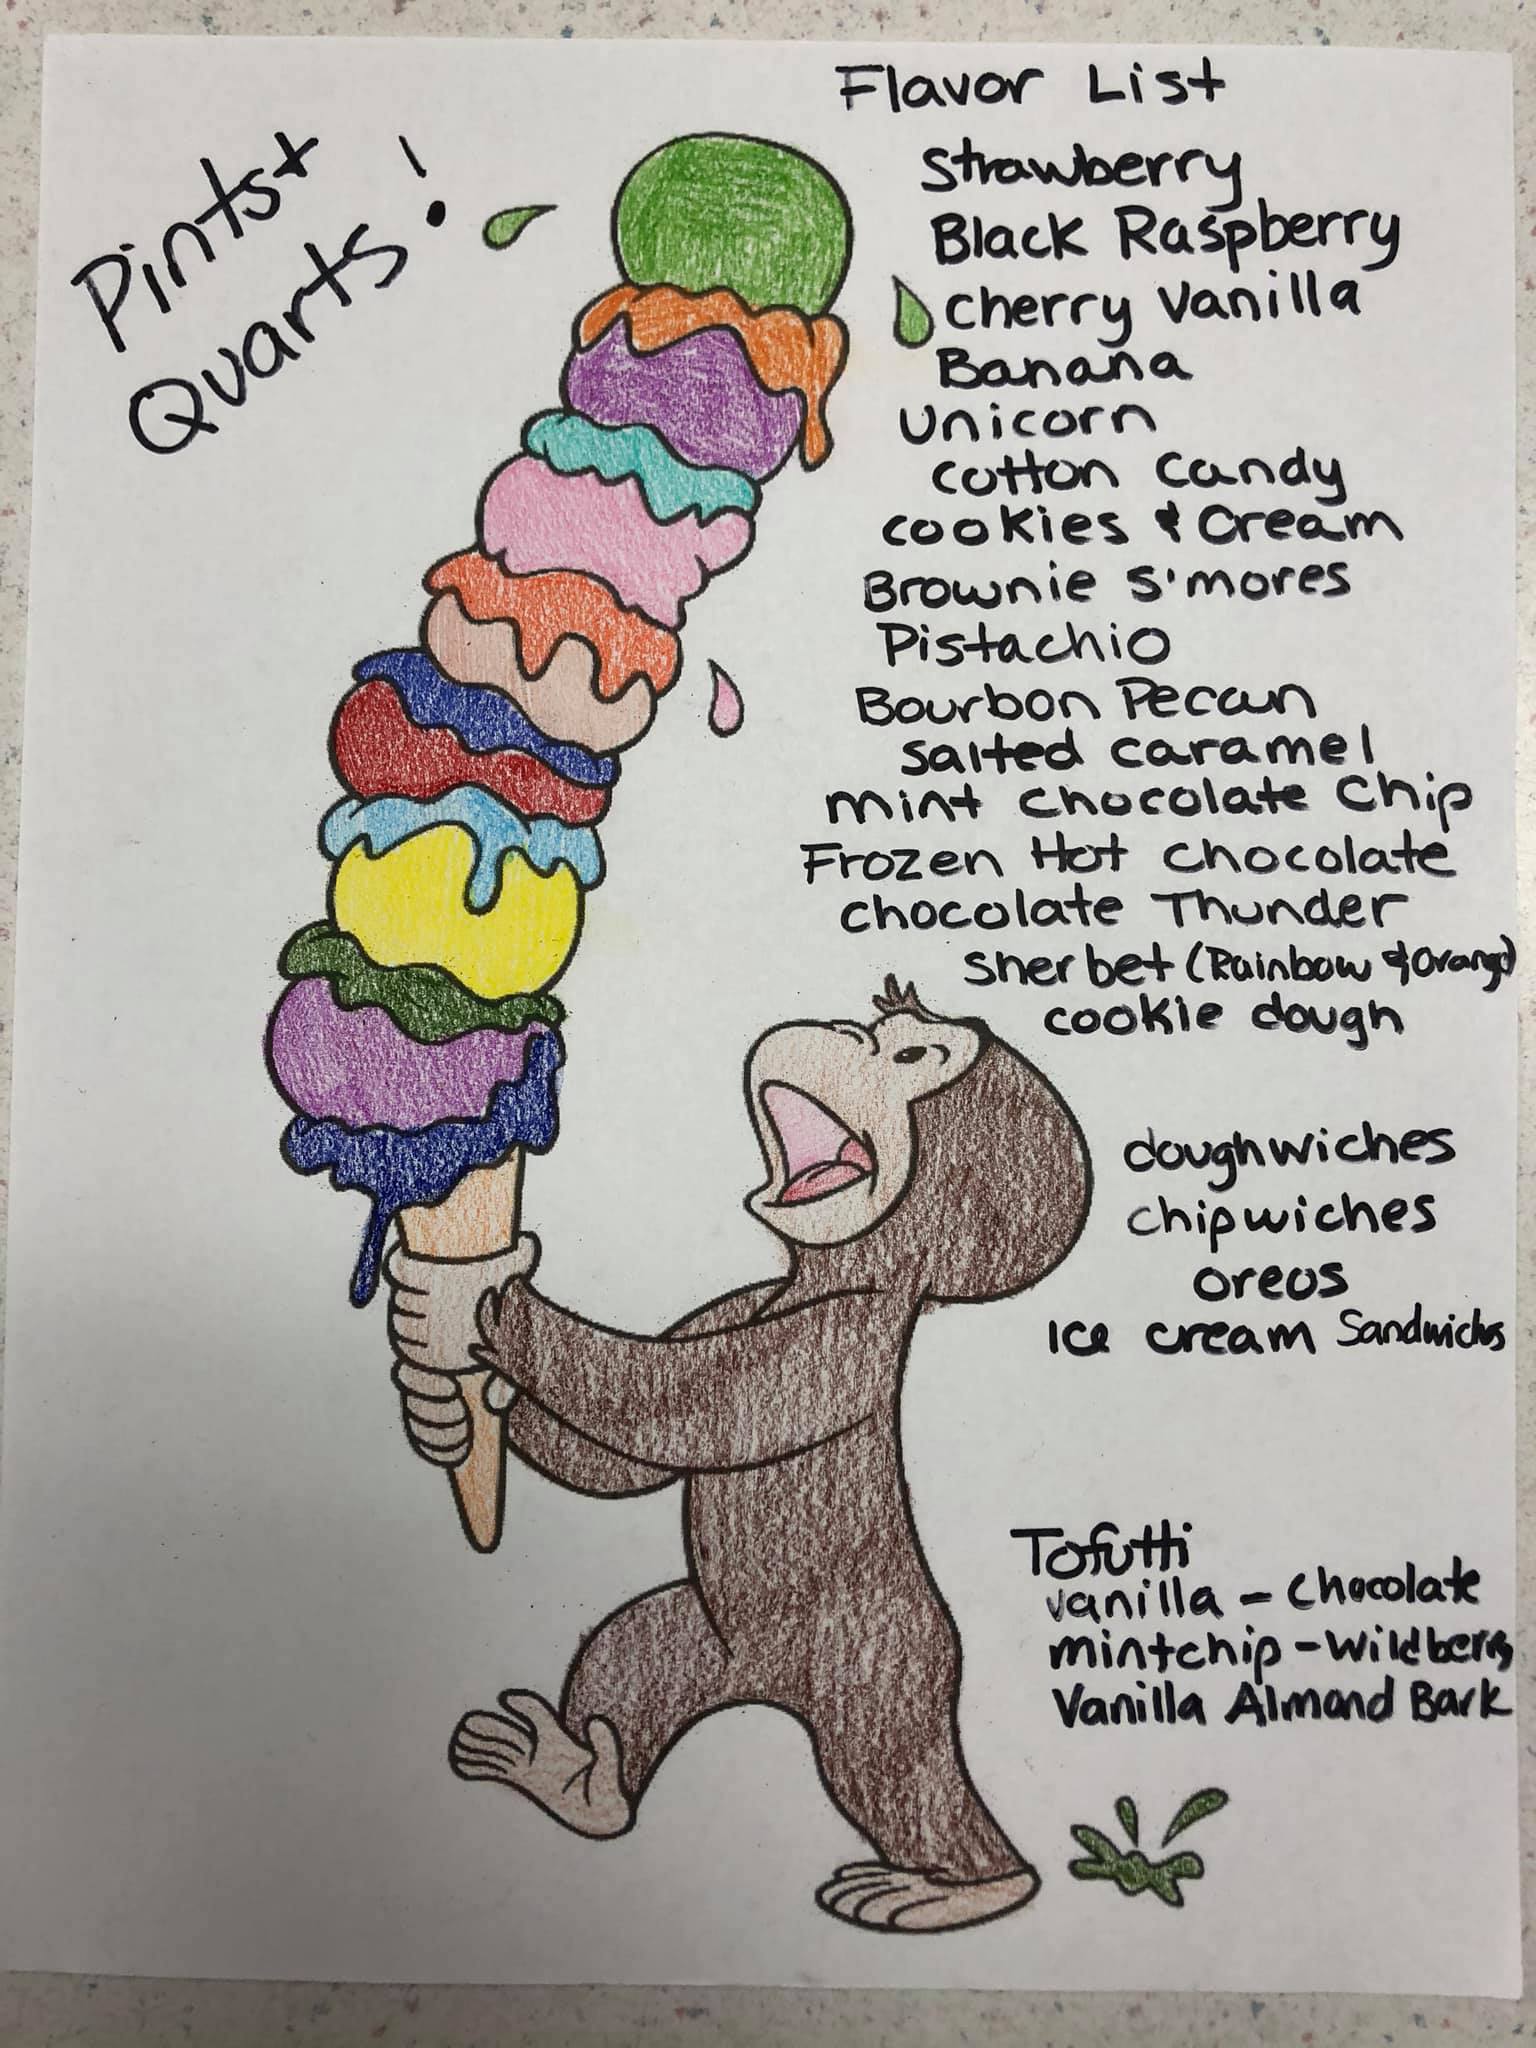 Pints +
Quarts!
Flavor List
Strawberry
Black Raspberry
Cherry Vanilla
Banana
Unicorn
Cotton Candy
Cookies & Cream
Brownie S'mores
Pistachio
Bourbon Pecan
Salted Caramel
Mint Chocolate Chip
Frozen Hot Chocolate
Chocolate Thunder
Sherbet (Rainbow & Orange)
Cookie dough
doughwiches
chipwiches
oreos
Ice Cream Sandwiches
Tofutti
Vanilla - Chocolate
mintchip - Wildberry
Vanilla Almond Bark